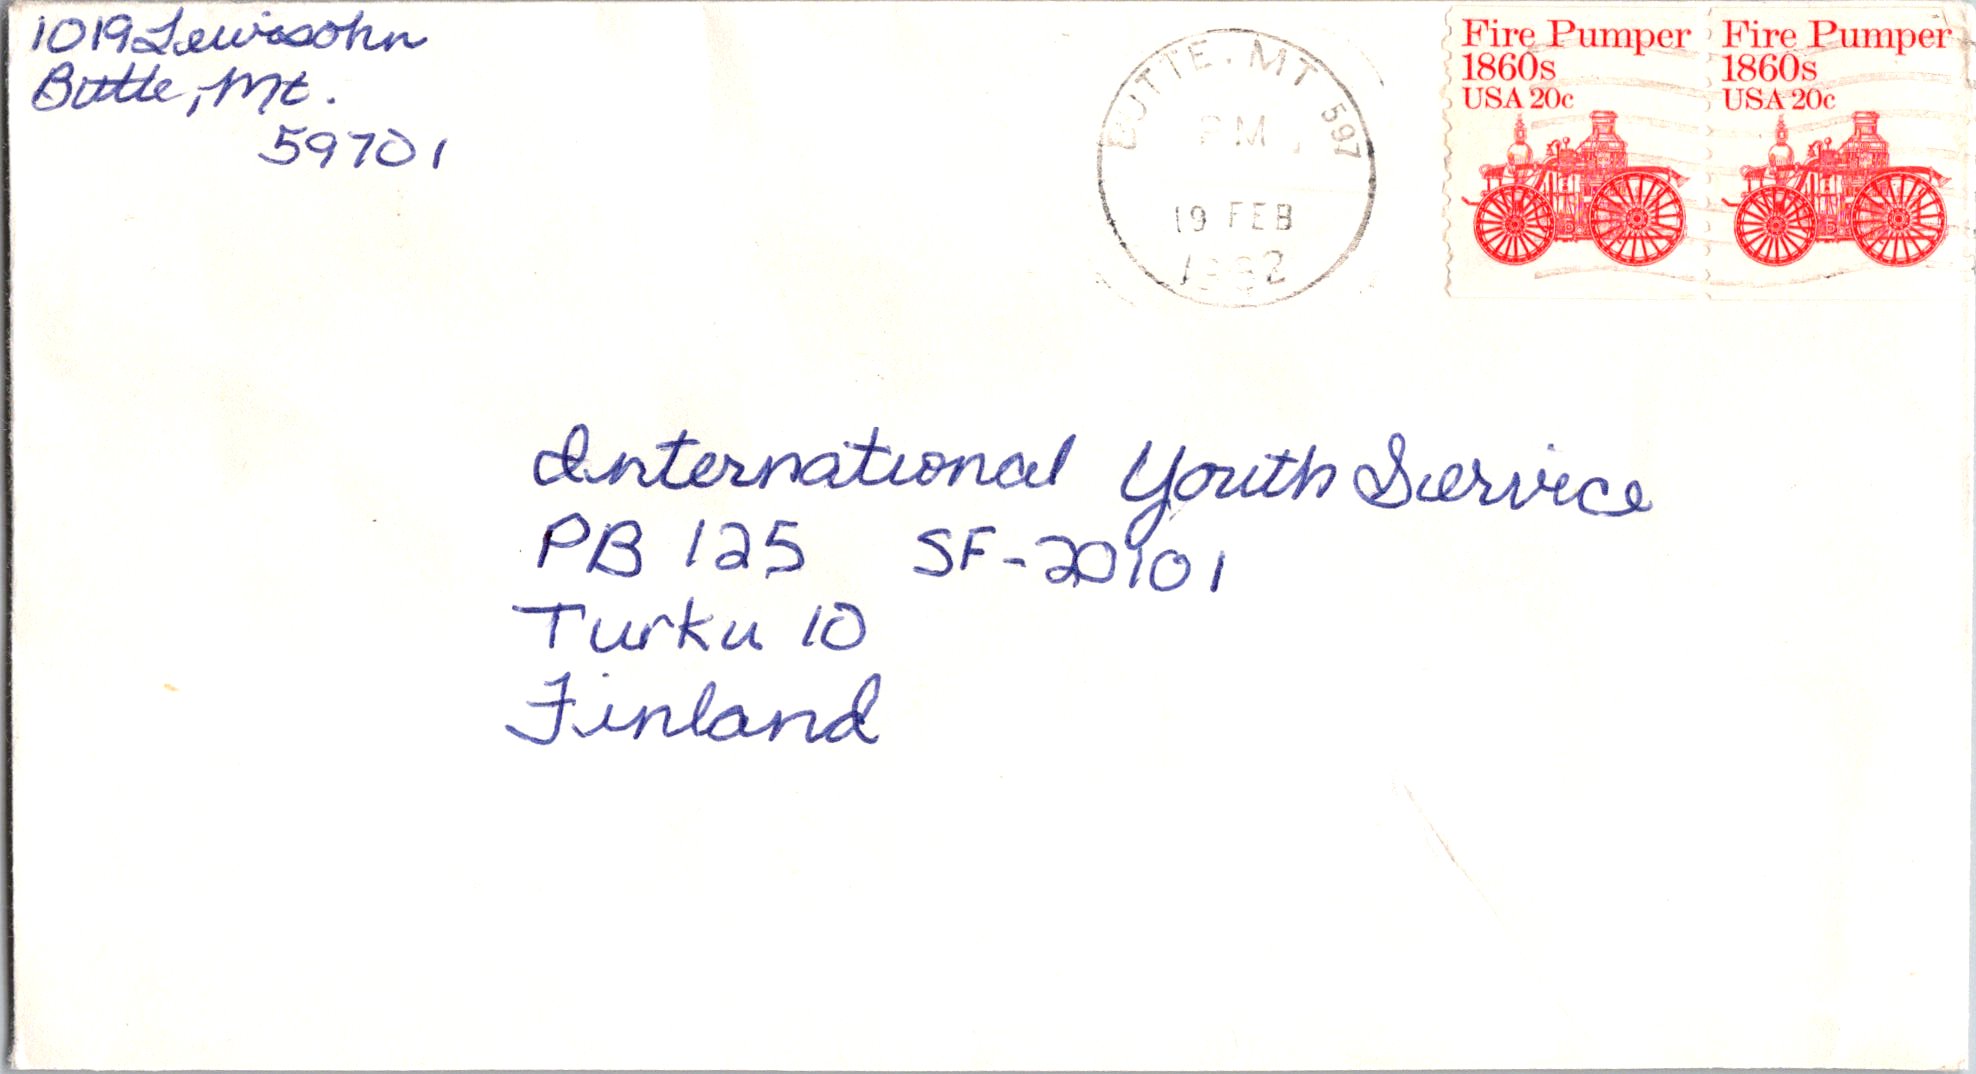 1019 Lewisohn
Butte, Mt.
59701
BUTTE, MT 597
PM
19 FEB
1982
Fire Pumper
1860s
USA 20c
Fire Pumper
1860s
USA 20c
International Youth Service
PB 125 SF-20101
Turku 10
Finland